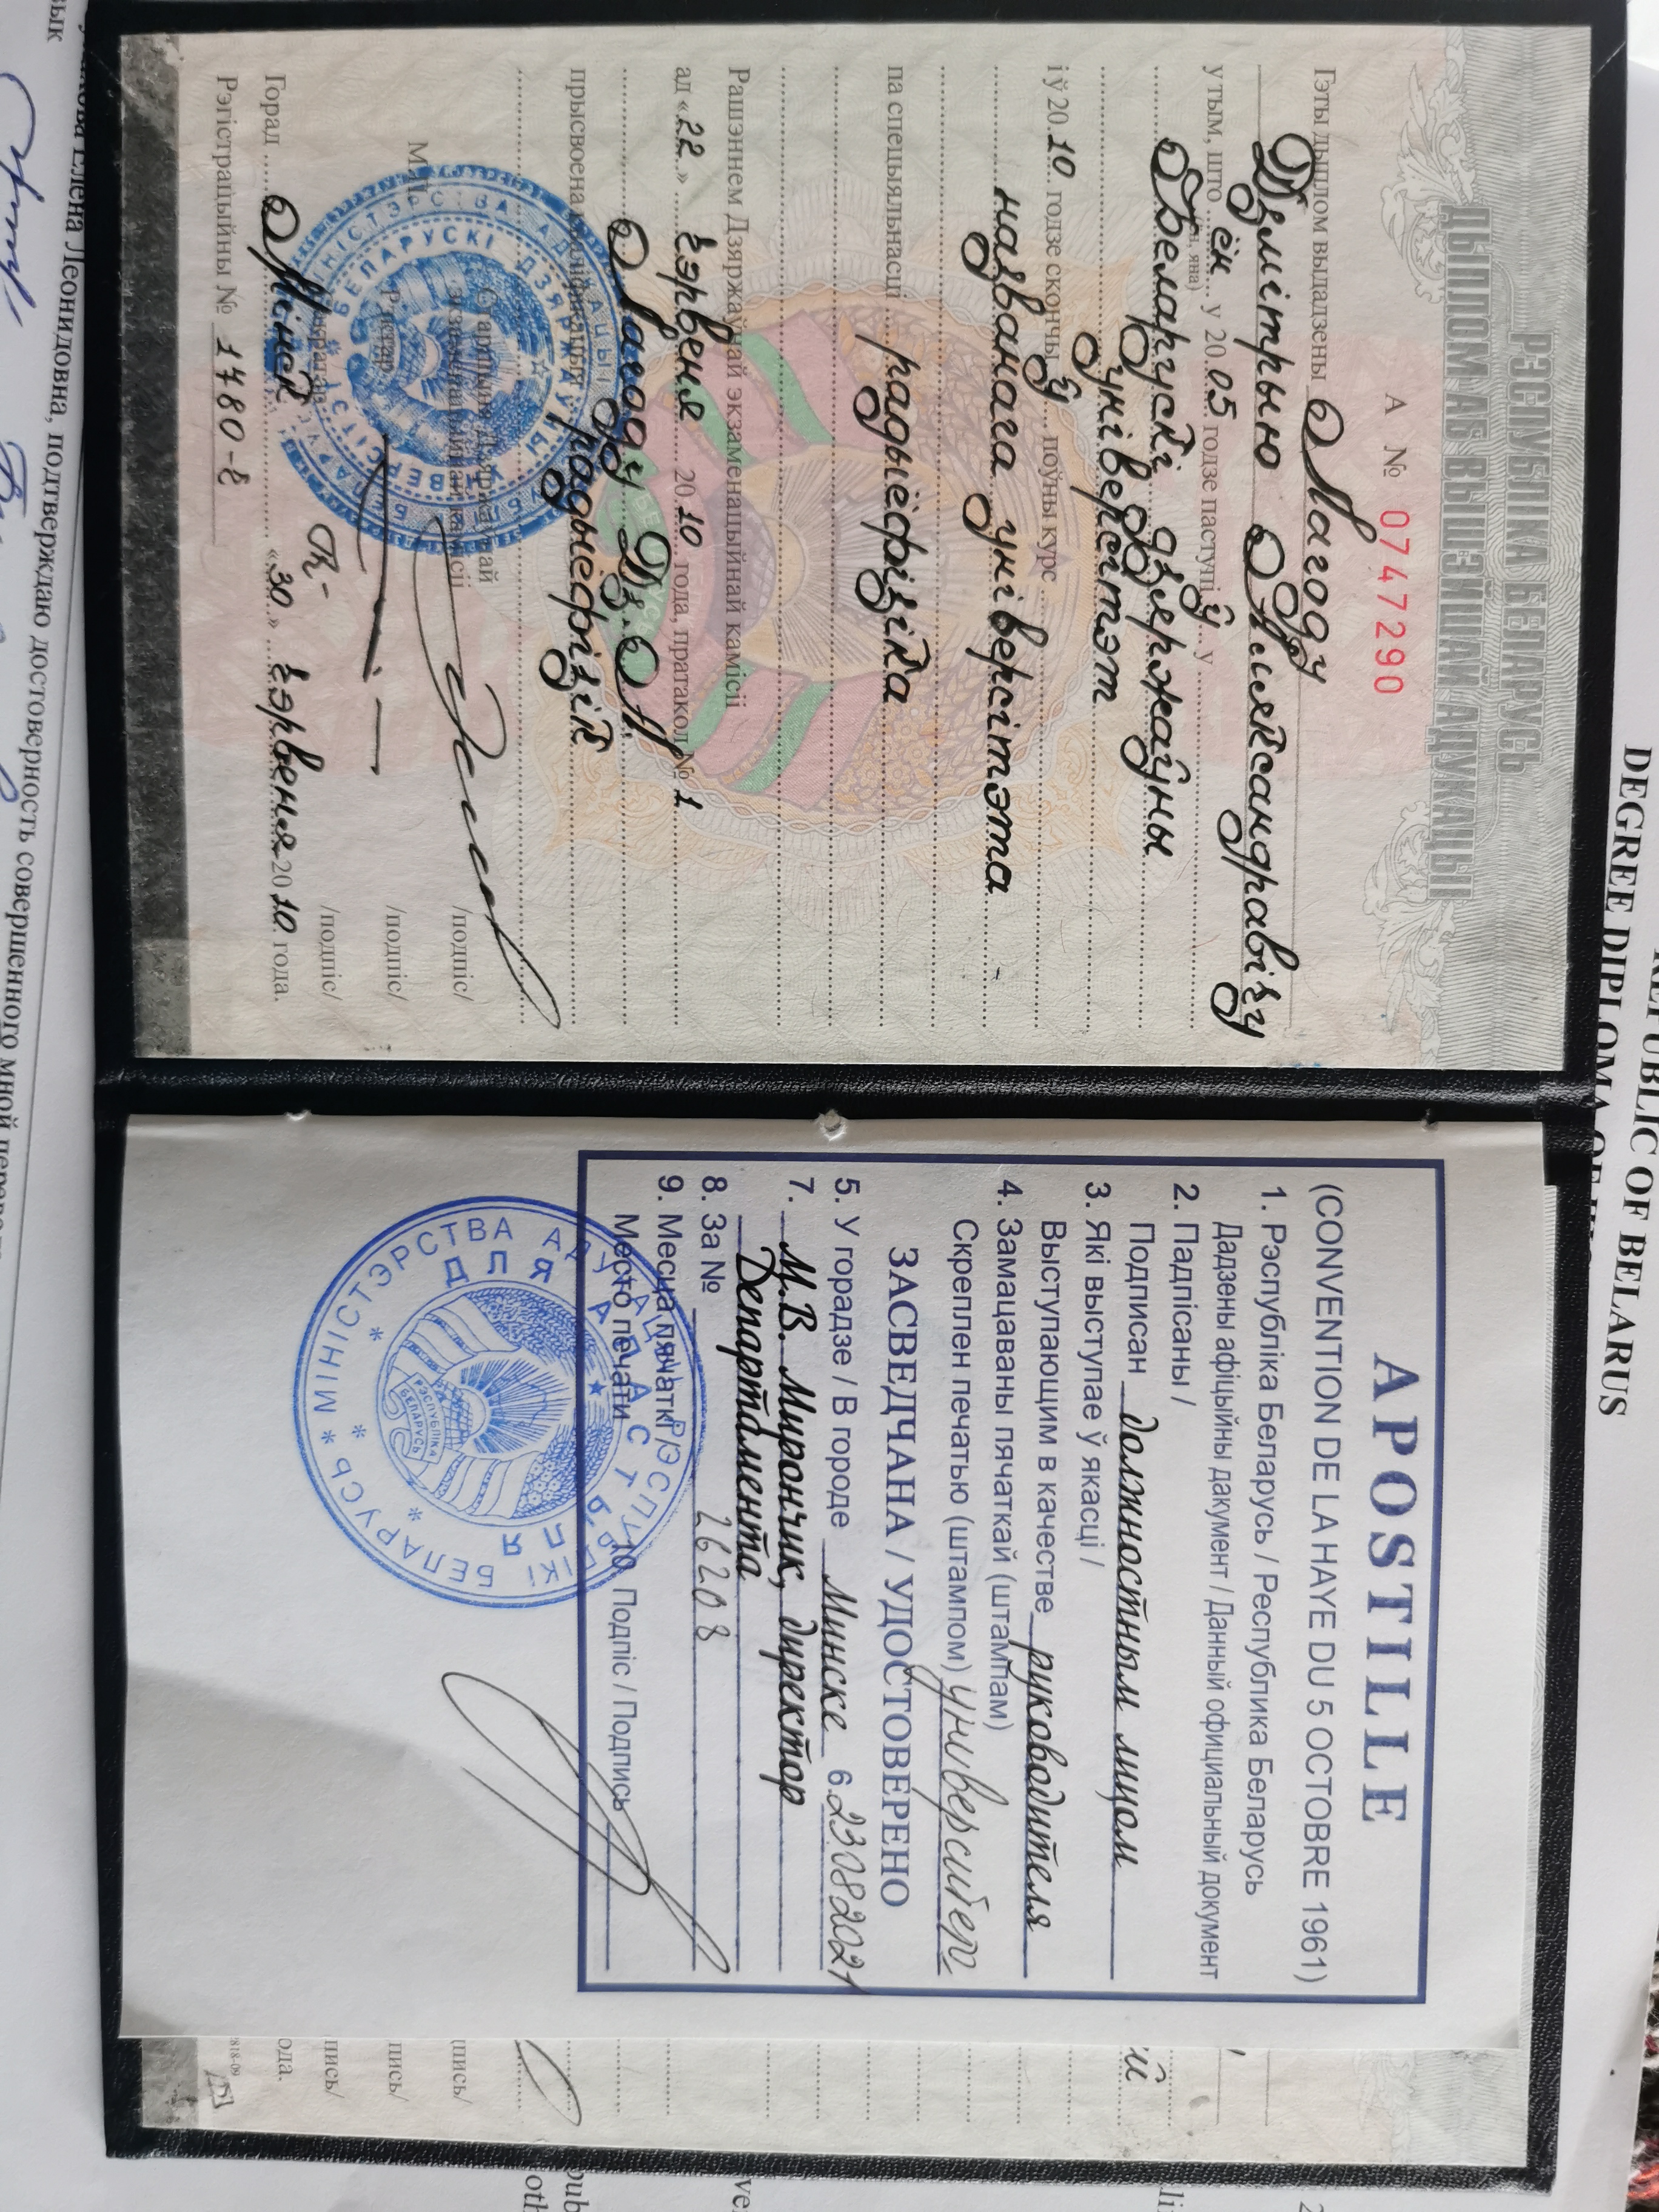 REPUBLIC OF BELARUS
DEGREE DIPLOMA OF
РЭСПУБЛІКА БЕЛАРУСЬ
ДЫПЛОМ АБ ВЫШЭЙШАЙ АДУКАЦЫІ
А № 0747290
Гэты дыплом выдадзены Лагоду
Дзмітрыю Аляксандравічу
у тым, што ён у 2005 годзе паступіў у
(ён, яна)
Беларускі дзяржаўны
універсітэт
і ў 2010 годзе скончыў поўны курс
названага універсітэта
па спецыяльнасці радыёфізіка
Рашэннем Дзяржаўнай экзаменацыйнай камісіі
ад «22» чэрвеня 2010 года, пратакол № 1
Лагоду Дз. А.
прысвоена кваліфікацыя радыёфізік
Старшыня Дзяржаўнай
экзаменацыйнай камісіі /подпіс/
М.П.
Рэктар /подпіс/
Сакратар /подпіс/
Горад Мінск «30» чэрвеня 2010 года.
Рэгістрацыйны № 1780-г
МІНІСТЭРСТВА АДУКАЦЫІ РЭСПУБЛІКІ БЕЛАРУСЬ
БЕЛАРУСКІ ДЗЯРЖАЎНЫ УНІВЕРСІТЭТ
APOSTILLE
(CONVENTION DE LA HAYE DU 5 OCTOBRE 1961)
1. Рэспубліка Беларусь / Республика Беларусь
Дадзены афіцыйны дакумент / Данный официальный документ
2. Падпісаны /
Подписан должностным лицом
3. Які выступае ў якасці /
Выступающим в качестве руководителя
4. Замацаваны пячаткай (штампам)
Скреплен печатью (штампом) университета
ЗАСВЕДЧАНА / УДОСТОВЕРЕНО
5. У горадзе / В городе Минске 6. 23.08.2021
7. М.В. Мирончик, директор
Департамента
8. За № 26208
9. Месца пячаткі /
Место печати 10. Подпіс / Подпись
МІНІСТЭРСТВА АДУКАЦЫІ РЭСПУБЛІКІ БЕЛАРУСЬ
ДЛЯ АПАСТЫЛЯ
РЭСПУБЛІКА
БЕЛАРУСЬ
ода.
818-09
Елена Леонидовна, подтверждаю достоверность совершенного мной